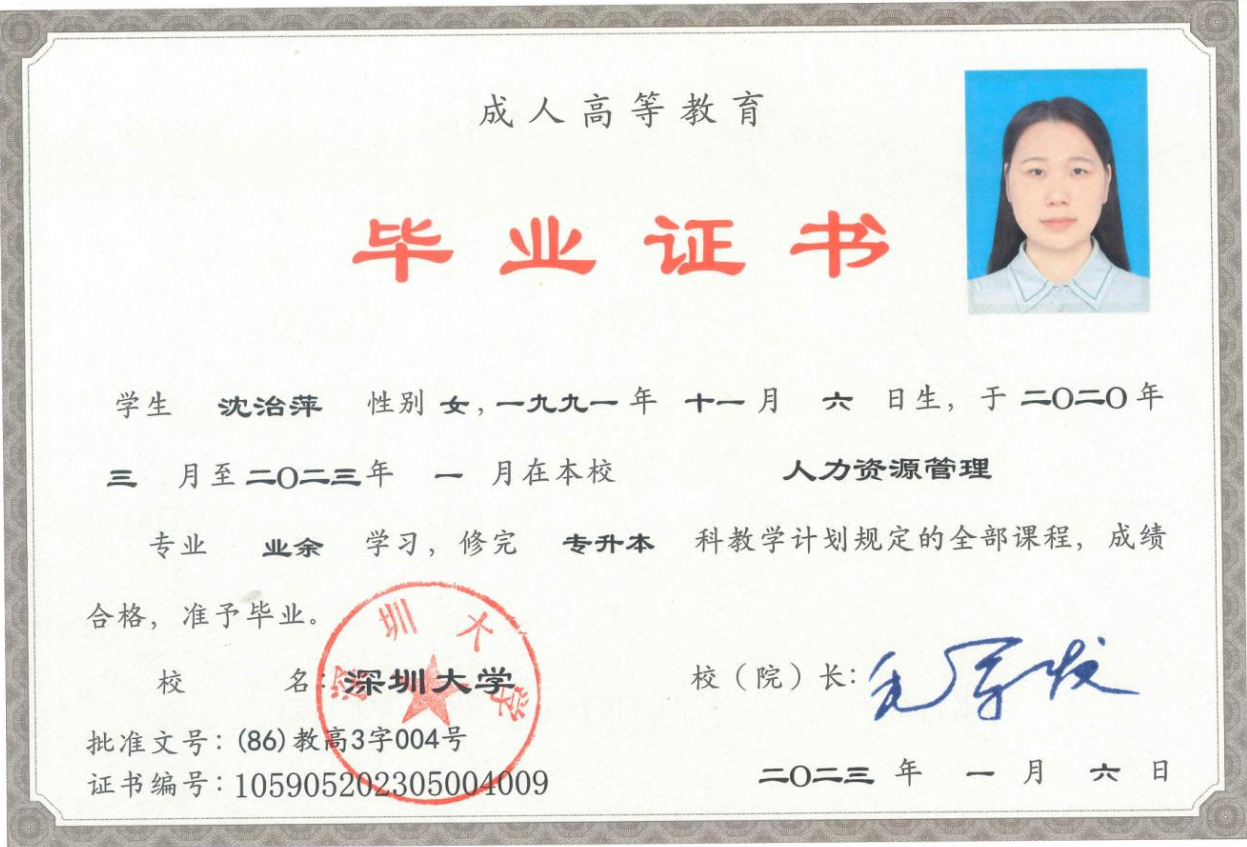 成人高等教育
毕业证书
学生 沈治萍 性别 女，一九九一年 十一月 六 日生，于二〇二〇年
三 月至二〇二三年 一 月在本校 人力资源管理
专业 业余 学习，修完 专升本 科教学计划规定的全部课程，成绩
合格，准予毕业。
深圳大学
校 名：深圳大学 校（院）长：毛军发
批准文号：(86)教高3字004号
证书编号：105905202305004009
二〇二三 年 一 月 六 日